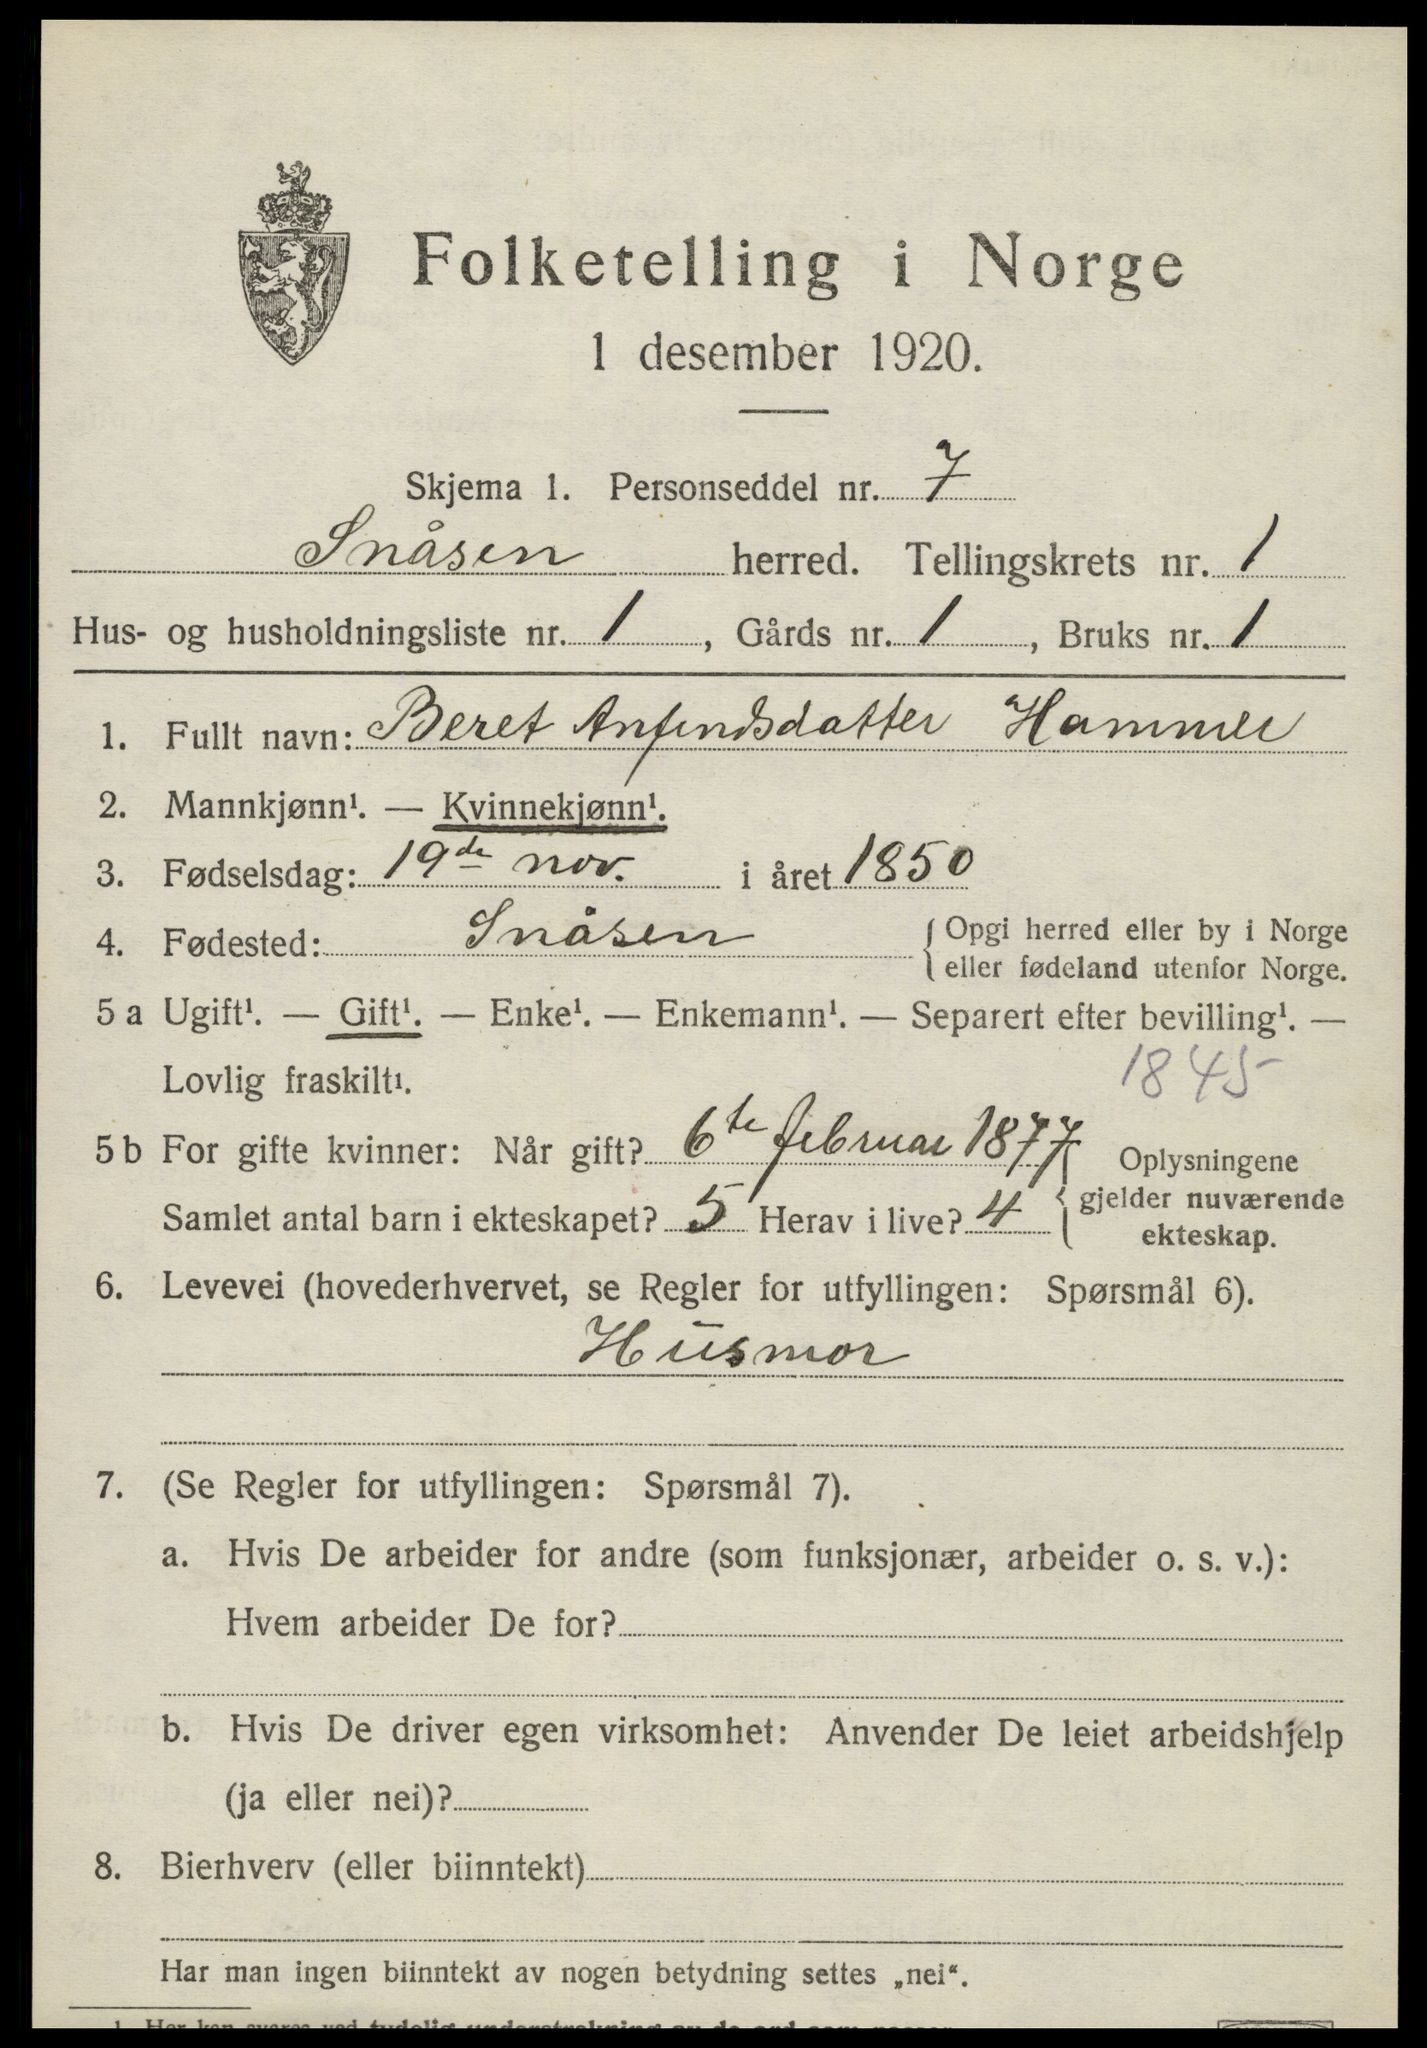 Folketelling i Norge
1 desember 1920.
Skjema 1. Personseddel nr. 7
Snåsen herred. Tellingskrets nr. 1
Hus- og husholdningsliste nr. 1, Gårds nr. 1, Bruks nr. 1
1. Fullt navn: Beret Anfindsdatter Hammer
2. Mannkjønn¹. — Kvinnekjønn¹.
3. Fødselsdag: 19de nov. i året 1850
4. Fødested: Snåsen { Opgi herred eller by i Norge
eller fødeland utenfor Norge.
5 a Ugift¹. — Gift¹. — Enke¹. — Enkemann¹. — Separert efter bevilling¹. —
Lovlig fraskilt¹.
1845
5 b For gifte kvinner: Når gift? 6te februar 1877
Samlet antal barn i ekteskapet? 5 Herav i live? 4
{ Oplysningene
gjelder nuværende
ekteskap.
6. Levevei (hovederhvervet, se Regler for utfyllingen: Spørsmål 6).
Husmor
7. (Se Regler for utfyllingen: Spørsmål 7).
a. Hvis De arbeider for andre (som funksjonær, arbeider o. s. v.):
Hvem arbeider De for?
b. Hvis De driver egen virksomhet: Anvender De leiet arbeidshjelp
(ja eller nei)?
8. Bierhverv (eller biinntekt)
Har man ingen biinntekt av nogen betydning settes „nei“.